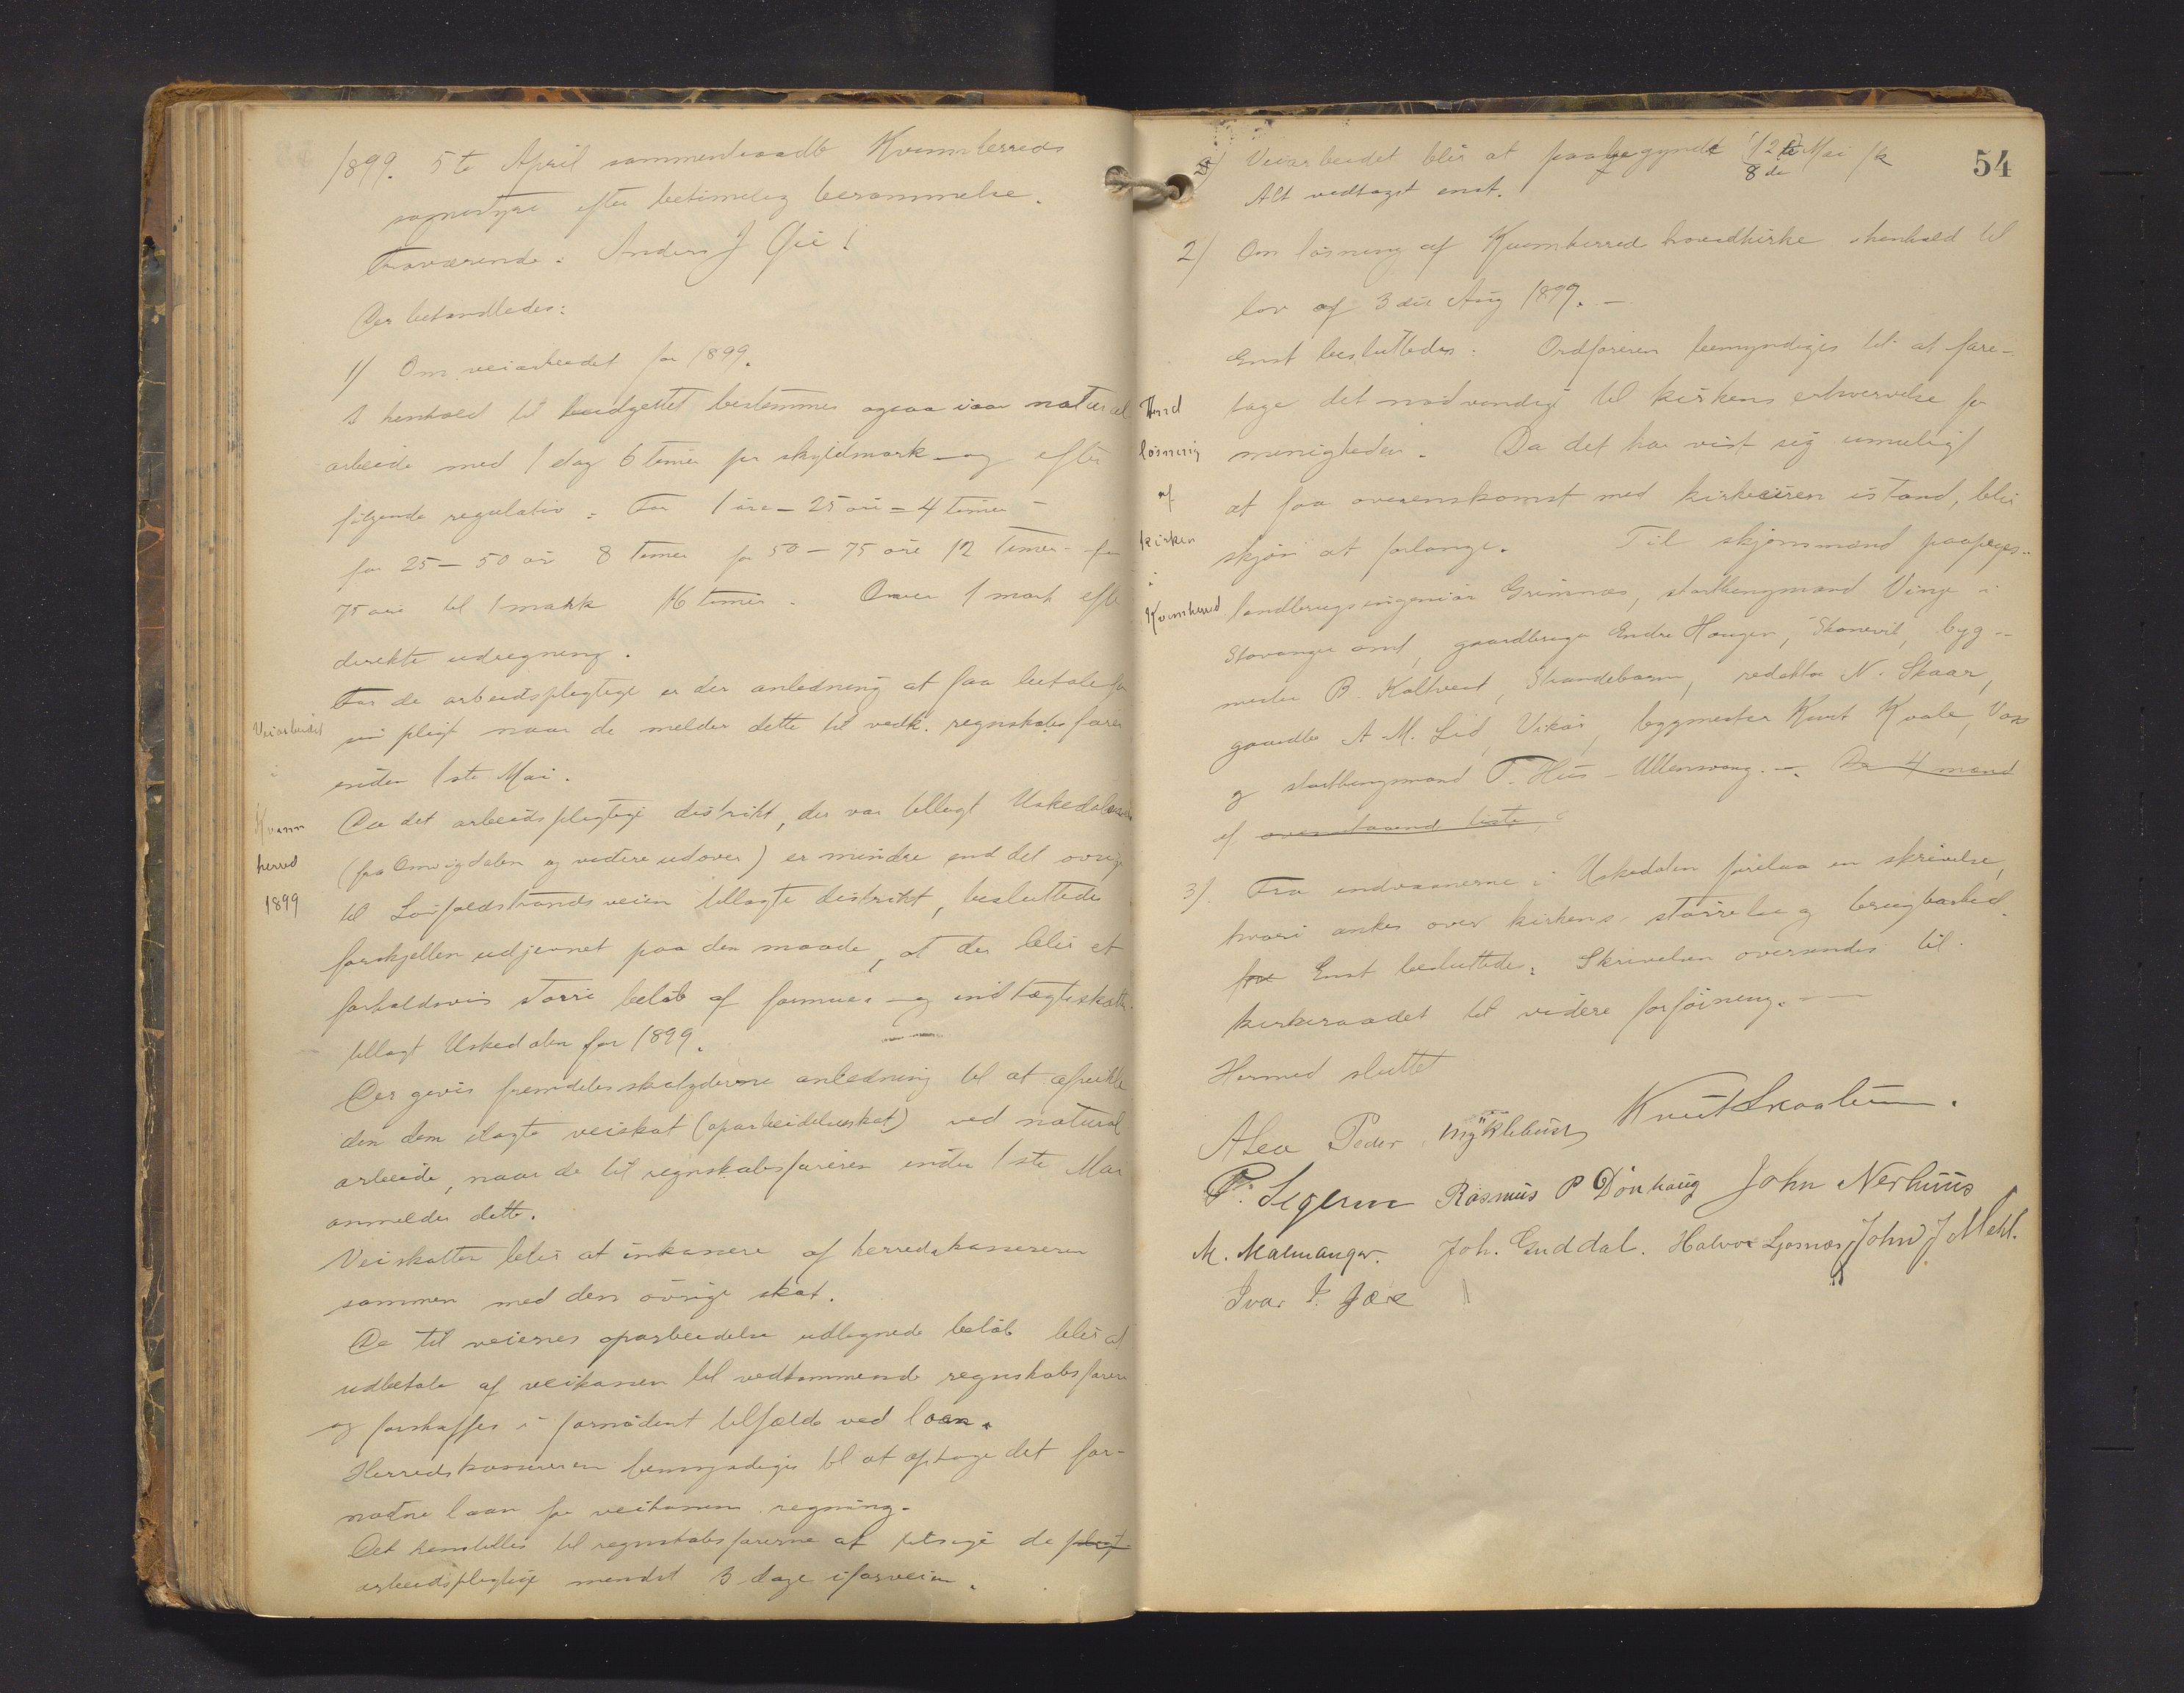 1899. 5te April sammentraadte Kvinnherreds
sognestyre efter betimelig berammelse.
Fraværende: Anders J
Der behandledes:
1/ Om veiarbeidet for 1899.
I henhold til budgettet bestemmes ogsaa iaar natural
arbeide med 1 dag 6 timer pr skyldmark og efter
følgende regulativ: For 1 øre - 25 øre = 4 timer -
for 25 - 50 ør 8 timer for 50 - 75 øre 12 timer - for
75 øre til 1 mark 16 timer. Over 1 mark efter
direkte udregning.
For de arbeidspligtige er der anledning at faa betale for
sin pligt naar de melder dette til vedk. regnskabsfører
inden 1ste Mai.
Veiarbeidet
i
Kvinn
herred
1899
Da det arbeidspligtige distrikt, der var tillagt Uskedalsveien
(fra Omvigdalen og videre udover) er mindre end det øvrige
til Lofjaldstrandsveien tillagte distrikt, besluttedes
forskjellen udjevnet paa den maade, at der blir et
forholdsvis større beløb af formues- og indtægtsskatten
tillagt Uskedalen for 1899.
Der gives fremdeles skatyderne anledning til at afvikle
den dem ilagte veiskat (oparbeidelsesskat) ved natural
arbeide, naar de til regnskabsføreren inden 1ste Mai
anmelder dette.
Veiskatten blir at inkassere af herredskassereren
sammen med den øvrige skat.
De til veienes oparbeidelse udlignede beløb blir at
udbetale af veikassen til vedkommende regnskabsfører
og forskaffes i fornødent tilfælde ved laan.
Herredskassereren bemyndiges til at optage det for-
nødne laan for veikassens regning.
Det henstilles til regnskabsførerne at tilsige de pligt
arbeidspligtige mindst 3 dage iforveien.
54
a) Veiarbeidet blir at paabegynde 12te Mai
8de
Alt vedtaget enst.
2) Om løsning af Kvinnherred hovedkirke i henhold til
lov af 3die Aug 1897. -
Enst besluttedes: Ordføreren bemyndiges til at fore-
tage det nødvendige til kirkens erhvervelse for
menigheden. Da det har vist sig umuligt
at faa overenskomst med kirkeeieren istand, blir
skjøn at forlange. Til skjønsmænd paapeges:
løsning
af
kirken
i
Kvinnherred
landbrugsingeniør Grimnæs, storthingsmand Vinge i
Stavanger amt, gaardbruger Endre Haugen, Skonevik, byg-
mester B. Koltveit, Strandebarm, redaktør N. Skaar,
gaardbr A. M. Lid, Vikør, bygmester Knut Kvale, Voss
og storthingsmand T. Hus - Ullensvang. - De 4 mænd
af ovenstaaend liste,
3). Fra indvaanerne i Uskedalen forelaa en skrivelse,
hvori ankes over kirkens størrelse og brugbarhed.
Enst besluttede: Skrivelsen oversendes til
kirkeraadet til videre forføining. -
Hermed sluttet
Peder Myklebust Knut Skaalum.
Rasmus P Dønhaug John Nerhuus
M. Malmanger. Joh. Guddal. Halvor Ljosnæs John J Mehl.
Ivar